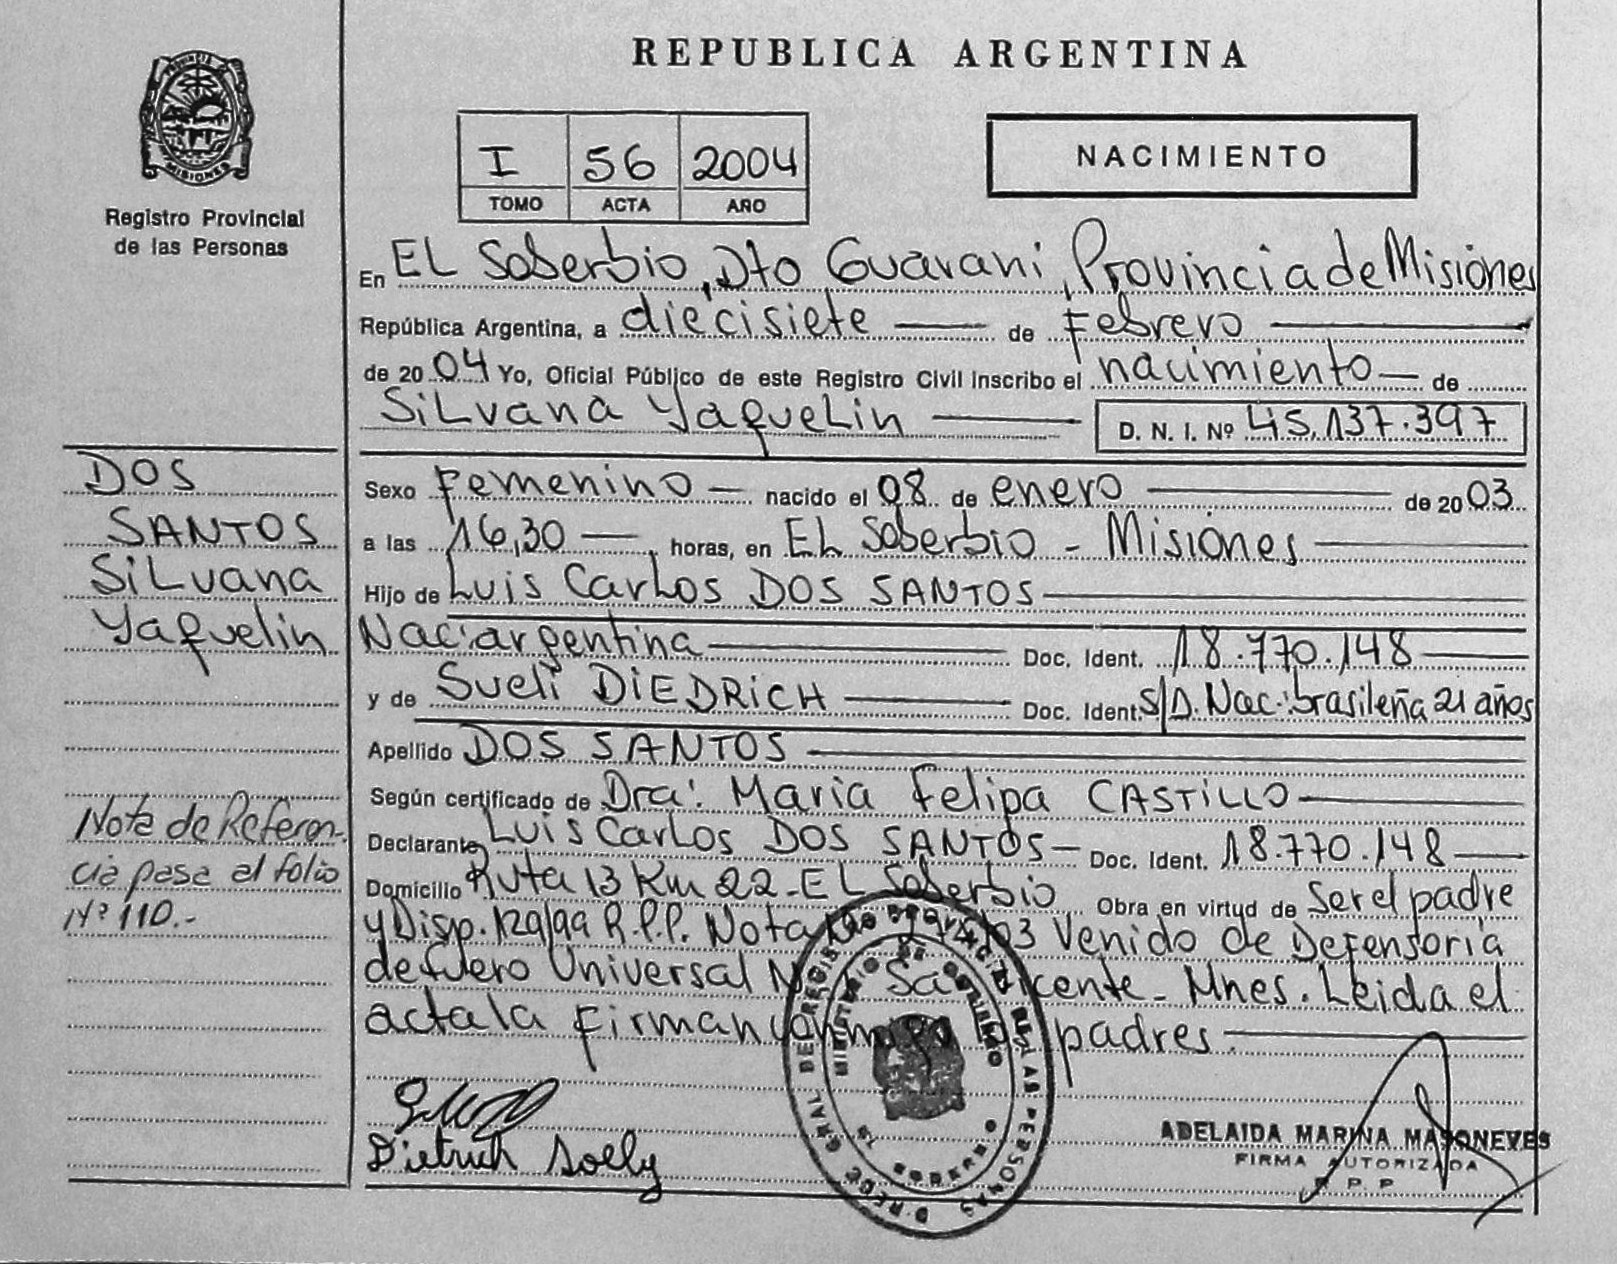 REPUBLICA ARGENTINA
MISIONES
Registro Provincial
de las Personas
I 56 2004
TOMO ACTA AÑO
NACIMIENTO
En EL Soberbio, Dto Guarani, Provincia de Misiones
República Argentina, a diecisiete de Febrero
de 20 04 Yo, Oficial Público de este Registro Civil inscribo el nacimiento de
SiLvana YaqueLin D. N. I. Nº 45.137.397
DOS
SANTOS
SiLvana
Yaquelin
Sexo Femenino nacido el 08 de enero de 20 03
a las 16,30 horas, en EL Soberbio - Misiones
Hijo de Luis CarLos DOS SANTOS
Nac: argentina Doc. Ident. 18.770.148
y de Sueli DiEDRicH Doc. Ident. S/D. Nac: brasileña 21 años
Apellido DOS SANTOS
Según certificado de Dra: Maria Felipa CASTiLLO
Declarante Luis CarLos DOS SANTOS Doc. Ident. 18.770.148
Domicilio Ruta 13 Km 22 - EL Soberbio Obra en virtud de Ser el padre
y Disp. 129/99 R.P.P. Nota 03 Venido de Defensoria
de fuero Universal San Vicente - Mnes. Leida el
acta la Firman conmigo los padres.
Nota de Referen-
cia pasa al folio
Nº 110.-
Dietrich Soely
ADELAIDA MARINA MASONEVES
FIRMA AUTORIZADA
R P P
DIRECC GRAL DE REGISTRO PROVINCIAL DE LAS PERSONAS
MINISTERIO DE GOBIERNO